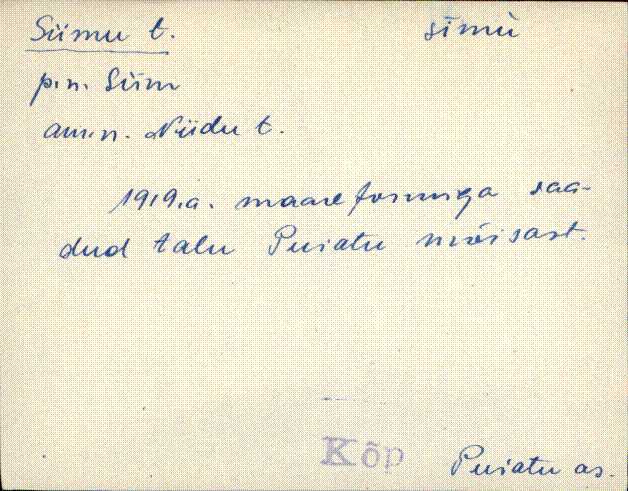 Siimu t. sīmù
p.n. Siim
am.n. Niidu t.
1919.a. maareformiga saa-
dud talu Puiatu mõisast.
Kõp
Puiatu as.